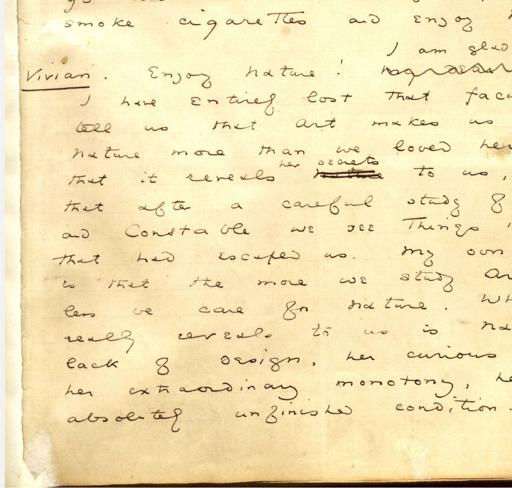 smoke cigarettes and enjoy
I am glad
Vivian. Enjoy Nature!
I have entirely lost that facu
tell us that Art makes us
Nature more than we loved her
her secrets
that it reveals to us,
that after a careful study of
and Constable we see things
that had escaped us. My own
is that the more we study Ar
less we care for Nature. Wh
really reveals to us is Na
lack of design, her curious
her extraordinary monotony, he
absolutely unfinished condition.